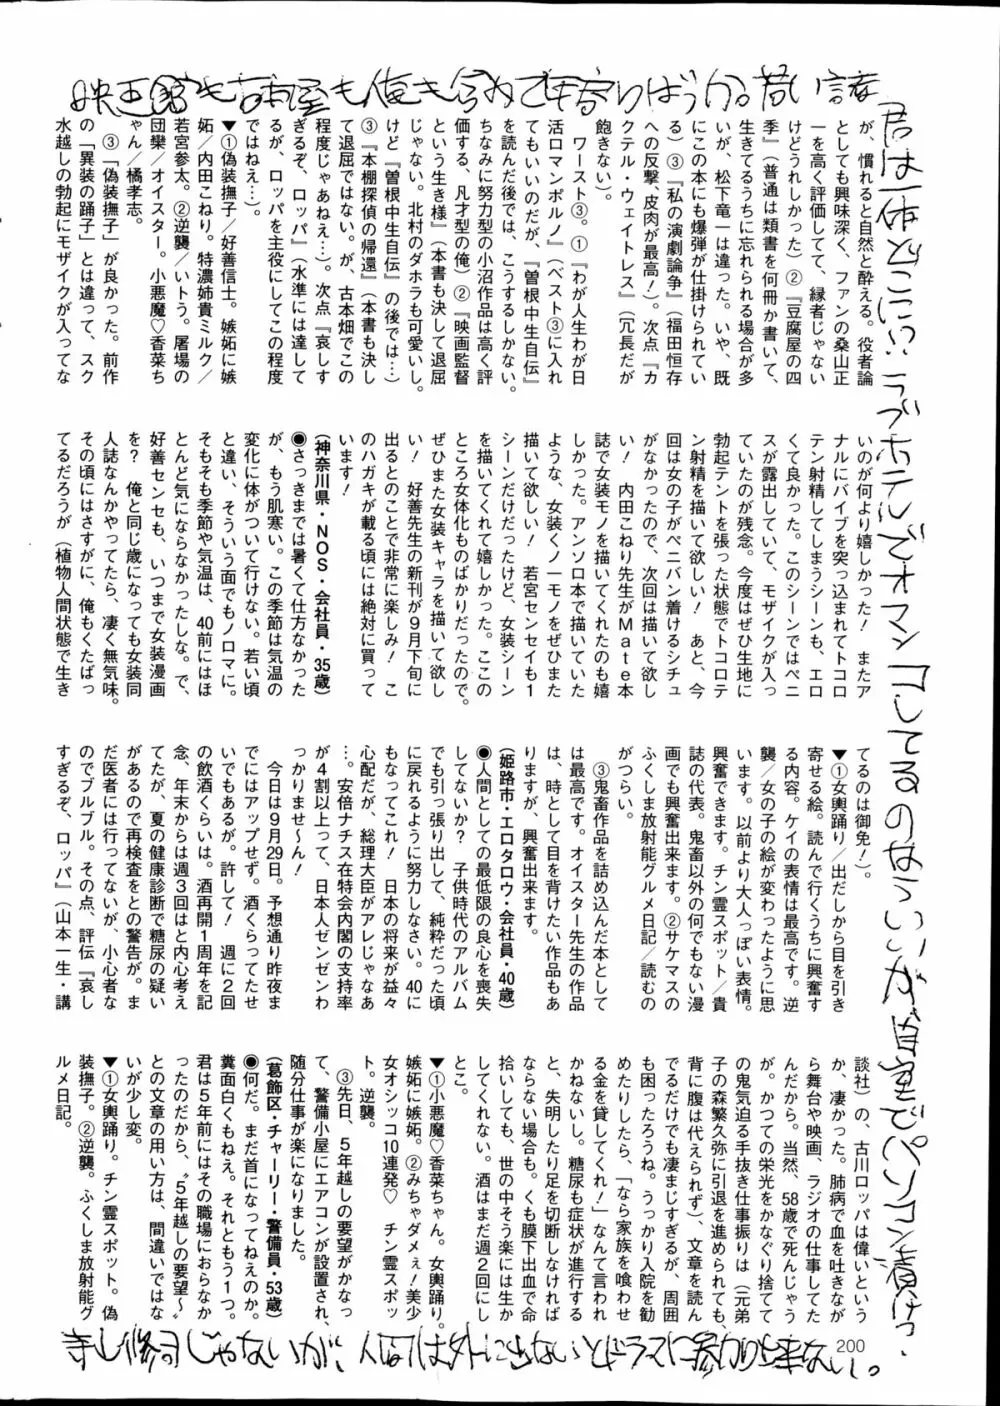 映画館も古本屋も俺も含めて年寄りばっかる。若い諸
君は一体どこに!? ラブホテルでオマンコしてるのならいいが、自室でパソコン漬け?
が、慣れると自然と酔える。役者論
としても興味深く、ファンの桑山正
一を高く評価してて、縁者じゃない
けどうれしかった)②『豆腐屋の四
季』(普通は類書を何冊か書いて、
生きてるうちに忘れられる場合が多
いが、松下竜一は違った。いや、既
にこの本にも爆弾が仕掛けられてい
る)③『私の演劇論争』(福田恒存
への反撃、皮肉が最高!)。次点『カ
クテル・ウェイトレス』(冗長だが
飽きない)。
ワースト③。①『わが人生わが日
活ロマンポルノ』(ベスト③に入れ
てもいいのだが、『曽根中生自伝』
を読んだ後では、こうするしかない。
ちなみに努力型の小沼作品は高く評
価する、凡才型の俺)②『映画監督
という生き様』(本書も決して退屈
じゃない。北村のダホラも可愛いし。
けど『曽根中生自伝』の後では…)
③『本棚探偵の帰還』(本書も決し
て退屈ではない。が、古本畑でこの
程度じゃあねえ…)。次点『哀しす
ぎるぞ、ロッパ』(水準には達して
るが、ロッパを主役にしてこの程度
ではねえ…)。
▼①偽装撫子/好善信士。嫉妬に嫉
妬/内田こねり。特濃姉貴ミルク/
若宮参太。②逆襲/いトう。屠場の
団欒/オイスター。小悪魔♡香菜ち
ゃん/橘孝志。
③「偽装撫子」が良かった。前作
の「異装の踊子」とは違って、スク
水越しの勃起にモザイクが入ってな
いのが何より嬉しかった! またア
ナルにバイブを突っ込まれてトコロ
テン射精してしまうシーンも、エロ
くて良かった。このシーンではペニ
スが露出していて、モザイクが入っ
ていたのが残念。今度はぜひ生地に
勃起テントを張った状態でトコロテ
ン射精を描いて欲しい! あと、今
回は女の子がペニバン着けるシチュ
がなかったので、次回は描いて欲し
い! 内田こねり先生がMate本
誌で女装モノを描いてくれたのも嬉
しかった。アンソロ本で描いていた
ような、女装くノ一モノをぜひまた
描いて欲しい! 若宮センセイも1
シーンだけだったけど、女装シーン
を描いてくれて嬉しかった。ここの
ところ女体化ものばかりだったので。
ぜひまた女装キャラを描いて欲し
い! 好善先生の新刊が9月下旬に
出るとのことで非常に楽しみ! こ
のハガキが載る頃には絶対に買って
います!
(神奈川県・NOS・会社員・35歳)
◉さっきまでは暑くて仕方なかった
が、もう肌寒い。この季節は気温の
変化に体がついて行けない。若い頃
と違い、そういう面でもノロマに。
そもそも季節や気温は、40前にはほ
とんど気にならなかったしな。で、
好善センセも、いつまで女装漫画
を? 俺と同じ歳になっても女装同
人誌なんかやってたら、凄く無気味。
その頃にはさすがに、俺もくたばっ
てるだろうが(植物人間状態で生き
てるのは御免!)。
▼①女輿踊り/出だしから目を引き
寄せる絵。読んで行くうちに興奮す
る内容。ケイの表情は最高です。逆
襲/女の子の絵が変わったように思
います。以前より大人っぽい表情。
興奮できます。チン霊スポット/貴
誌の代表。鬼畜以外の何でもない漫
画でも興奮出来ます。②サケマスの
ふくしま放射能グルメ日記/読むの
がつらい。
③鬼畜作品を詰め込んだ本として
は最高です。オイスター先生の作品
は、時として目を背けたい作品もあ
りますが、興奮出来ます。
(姫路市・エロタロウ・会社員・40歳)
◉人間としての最低限の良心を喪失
してないか? 子供時代のアルバム
でも引っ張り出して、純粋だった頃
に戻れるように努力しなさい。40に
もなってこれ! 日本の将来が益々
心配だが、総理大臣がアレじゃなあ
…。安倍ナチス在特会内閣の支持率
が4割以上って、日本人ゼンゼンわ
っかりませ〜ん!
今日は9月29日。予想通り昨夜ま
でにはアップせず。酒くらってたせ
いでもあるが。許して! 週に2回
の飲酒くらいは。酒再開1周年を記
念、年末からは週3回はと内心考え
てたが、夏の健康診断で糖尿の疑い
があるので再検査をとの警告が。ま
だ医者には行ってないが、小心者な
のでブルブル。その点、評伝『哀し
すぎるぞ、ロッパ』(山本一生・講
談社)の、古川ロッパは偉いという
か、凄かった。肺病で血を吐きなが
ら舞台や映画、ラジオの仕事してた
んだから。当然、58歳で死んじゃう
が。かつての栄光をかなぐり捨てて
の鬼気迫る手抜き仕事振りは(元弟
子の森繁久弥に引退を進められても、
背に腹は代えられず)、文章を読ん
でるだけでも凄まじすぎるが、周囲
も困ったろうね。うっかり入院を勧
めたりしたら、「なら家族を喰わせ
る金を貸してくれ!」なんて言われ
かねないし。糖尿も症状が進行する
と、失明したり足を切断しなければ
ならない場合も。くも膜下出血で命
拾いしても、世の中そう楽には生か
してくれない。酒はまだ週2回にし
とこ。
▼①小悪魔♡香菜ちゃん。女輿踊り。
嫉妬に嫉妬。②みちゃダメぇ!美少
女オシッコ10連発♡ チン霊スポッ
ト。逆襲。
③先日、5年越しの要望がかなっ
て、警備小屋にエアコンが設置され、
随分仕事が楽になりました。
(葛飾区・チャーリー・警備員・53歳)
◉何だ。まだ首になってねえのか。
糞面白くもねえ。それともう1つ。
君は5年前にはその職場におらなか
ったのだから、〝5年越しの要望〜
との文章の用い方は、間違いではな
いが少し変。
▼①女輿踊り。チン霊スポット。偽
装撫子。②逆襲。ふくしま放射能グ
ルメ日記。
寺山修司じゃないが、人間は外に出ないとドラマに参加出来ないし。
200